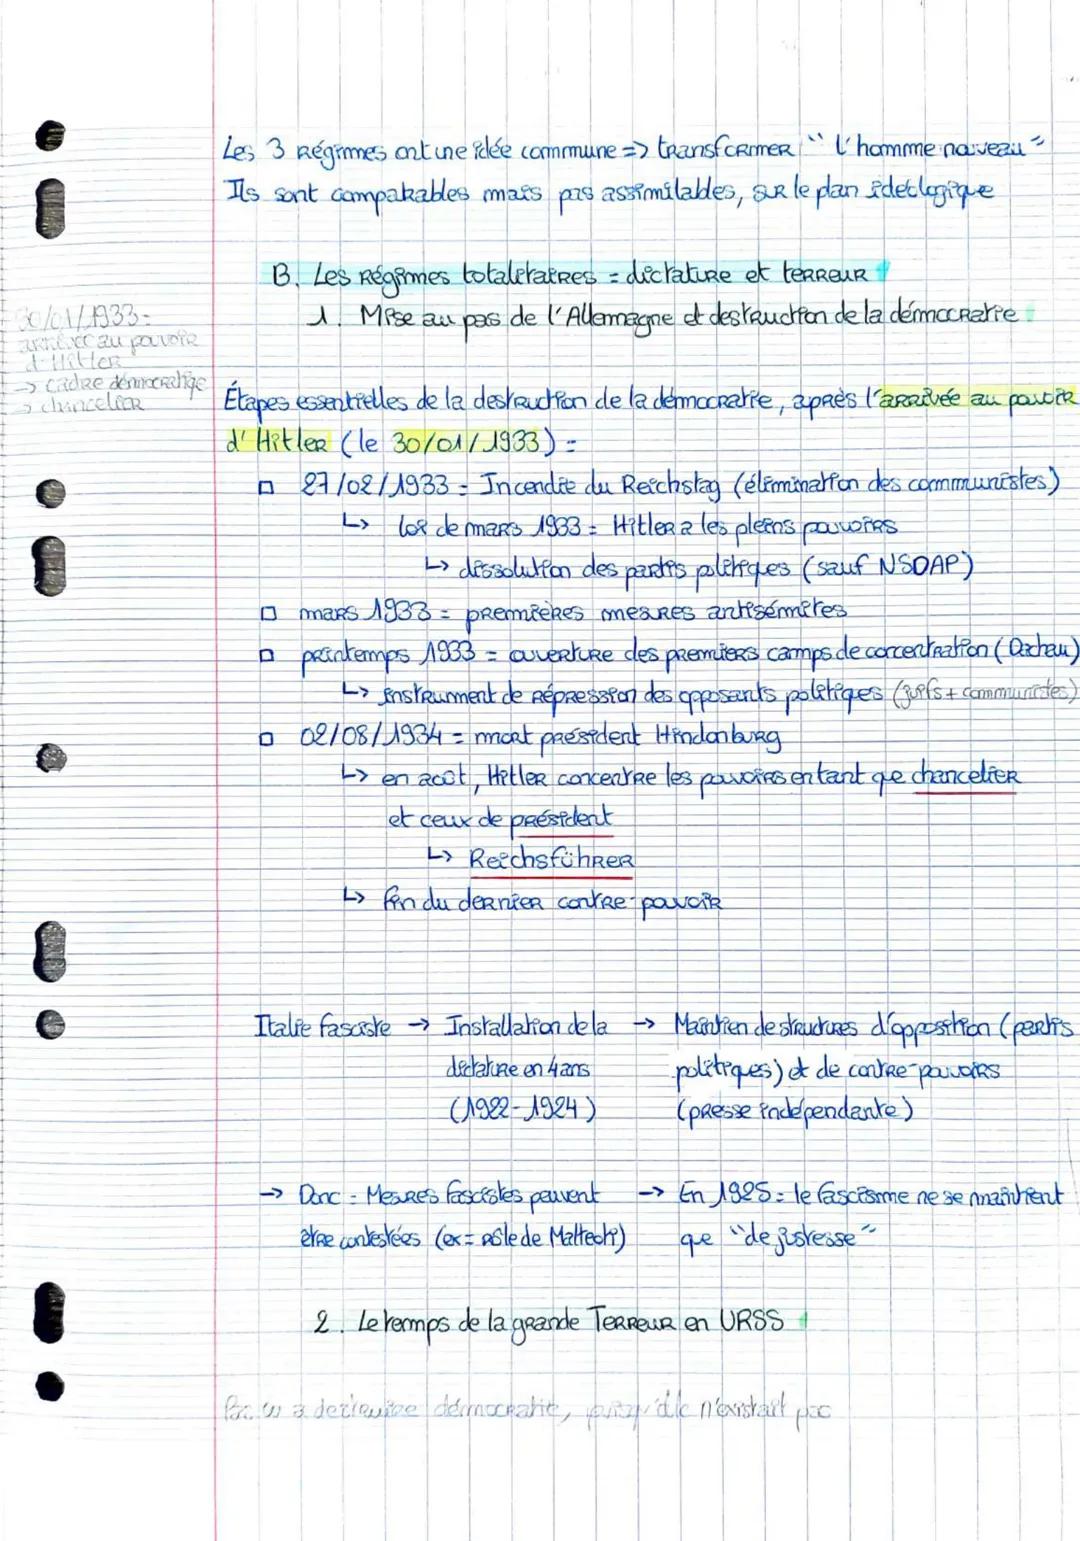 Les 3 Régimes ont une idée commune => transformer "l'homme nouveau"
Ils sont comparables mais pas assimilables, sur le plan idéologique
B. Les Régimes totalitaires = dictature et terreur
1. Mise au pas de l'Allemagne et destruction de la démocratie
30/01/1933 =
arrivée au pouvoir
d'Hitler
-> cadre démocratique
-> chancelier
Étapes essentielles de la destruction de la démocratie, après l'arrivée au pouvoir
d'Hitler (le 30/01/1933) =
▫ 27/02/1933 = Incendie du Reichstag (élimination des communistes)
↳ loi de mars 1933 = Hitler a les pleins pouvoirs
↳ dissolution des partis politiques (sauf NSDAP)
▫ mars 1933 = premières mesures antisémites
▫ printemps 1933 = ouverture des premiers camps de concentration (Dachau)
↳ instrument de répression des opposants politiques (juifs + communistes)
▫ 02/08/1934 = mort président Hindenburg
↳ en août, Hitler concentre les pouvoirs en tant que chancelier
et ceux de président
↳ Reichsführer
↳ fin du dernier contre-pouvoir
Italie fasciste -> Installation de la -> Maintien de structures d'opposition (partis
dictature en 4 ans politiques) et de contre-pouvoirs
(1922-1924) (presse indépendante)
-> Donc = Mesures fascistes peuvent -> En 1925 = le fascisme ne se maintient
être contestées (ex = rôle de Matteoti) que "de justesse"
2. Le temps de la grande Terreur en URSS
a détruire démocratie, n'existait pas